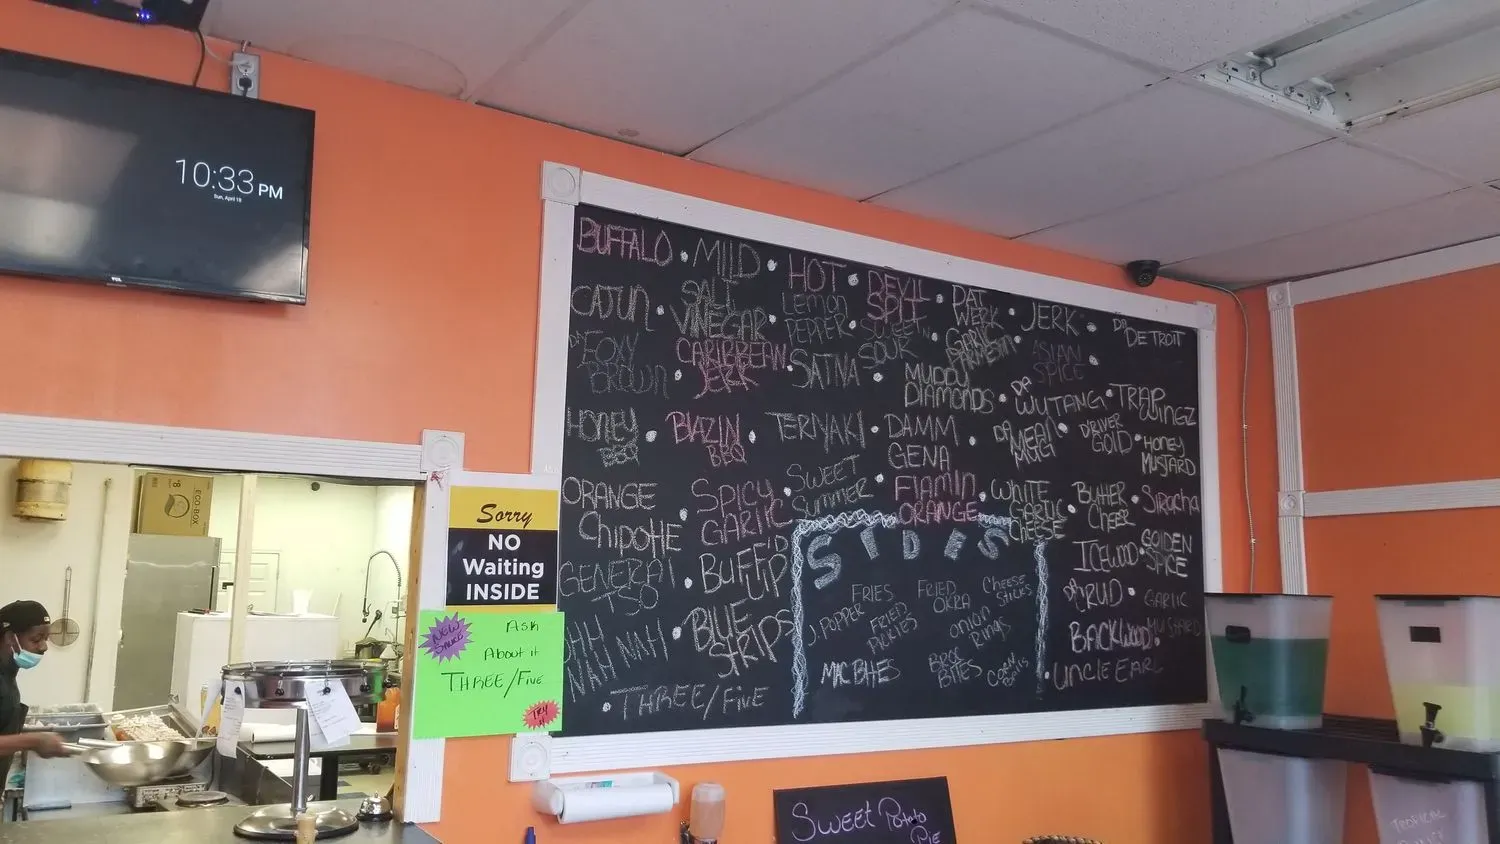 10:33 PM
Sun, April 18
TCL
BUFFALO • MILD • HOT • DEVIL SPIT • PAT WERK • JERK • DA DETROIT
CAJUN • SALT VINEGAR • LEMON PEPPER • SWEET N SOUR • GARLIC PARMESAN • ASIAN SPICE •
DA FOXY BROWN • CARIBBEAN JERK • SATIVA • MUDDY DIAMONDS • DA WUTANG • TRAP WINGZ
HONEY BBQ • BLAZIN BBQ • TERIYAKI • DAMM GENA • DA MEAN MUG • DRIVER GOLD • HONEY MUSTARD
ORANGE CHIPOTLE • SPICY GARLIC • SWEET SUMMER • FLAMIN ORANGE • WHITE GARLIC CHEESE • BUTHER CHEER • SIRACHA
GENERAL TSO • BUFF'D UP
ICEWOOD • GOLDEN SPICE
UHH NAH NAH • BLUE STRIPS
DA RUD • GARLIC MUSTARD
BACKWOOD •
• THREE/FIVE
• UNCLE EARL
SIDES
FRIES
FRIED OKRA
CHEESE STICKS
J. POPPER
FRIED PICKLES
ONION RINGS
MAC BITES
BROC BITES
CORN BALLS
ECO-BOX
Sorry
NO
Waiting
INSIDE
NEW SAUCE
ASK
ABOUT it
THREE/FIVE
TRY it
SWEET Potato
PIE
TROPICAL